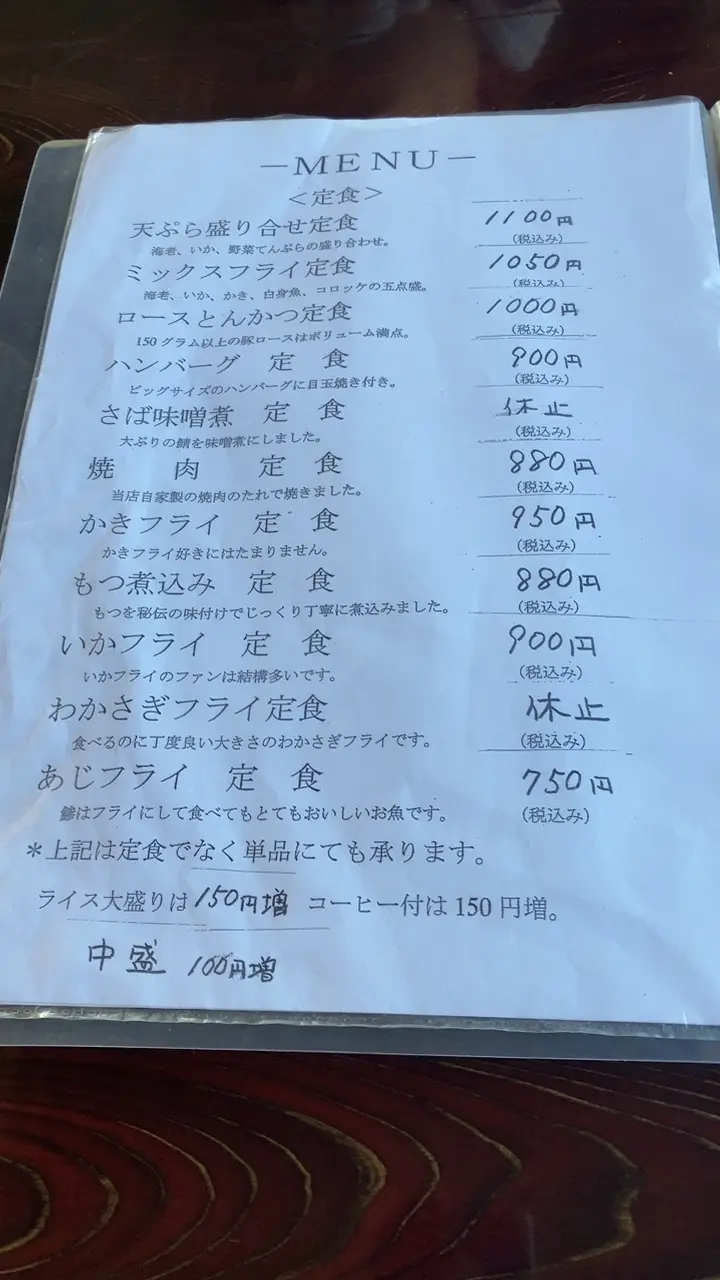 －MENU－
＜定食＞
天ぷら盛り合せ定食 1100円
海老、いか、野菜てんぷらの盛り合わせ。 (税込み)
ミックスフライ定食 1050円
海老、いか、かき、白身魚、コロッケの五点盛。 (税込み)
ロースとんかつ定食 1000円
150グラム以上の豚ロースはボリューム満点。 (税込み)
ハンバーグ 定 食 900円
ビッグサイズのハンバーグに目玉焼き付き。 (税込み)
さば味噌煮 定 食 休止
大ぶりの鯖を味噌煮にしました。 (税込み)
焼 肉 定 食 880円
当店自家製の焼肉のたれで焼きました。 (税込み)
かきフライ 定 食 950円
かきフライ好きにはたまりません。 (税込み)
もつ煮込み 定 食 880円
もつを秘伝の味付けでじっくり丁寧に煮込みました。 (税込み)
いかフライ 定 食 900円
いかフライのファンは結構多いです。 (税込み)
わかさぎフライ定食 休止
食べるのに丁度良い大きさのわかさぎフライです。 (税込み)
あじフライ 定 食 750円
鯵はフライにして食べてもとてもおいしいお魚です。 (税込み)
＊上記は定食でなく単品にても承ります。
ライス大盛りは150円増 コーヒー付は150円増。
中盛 100円増